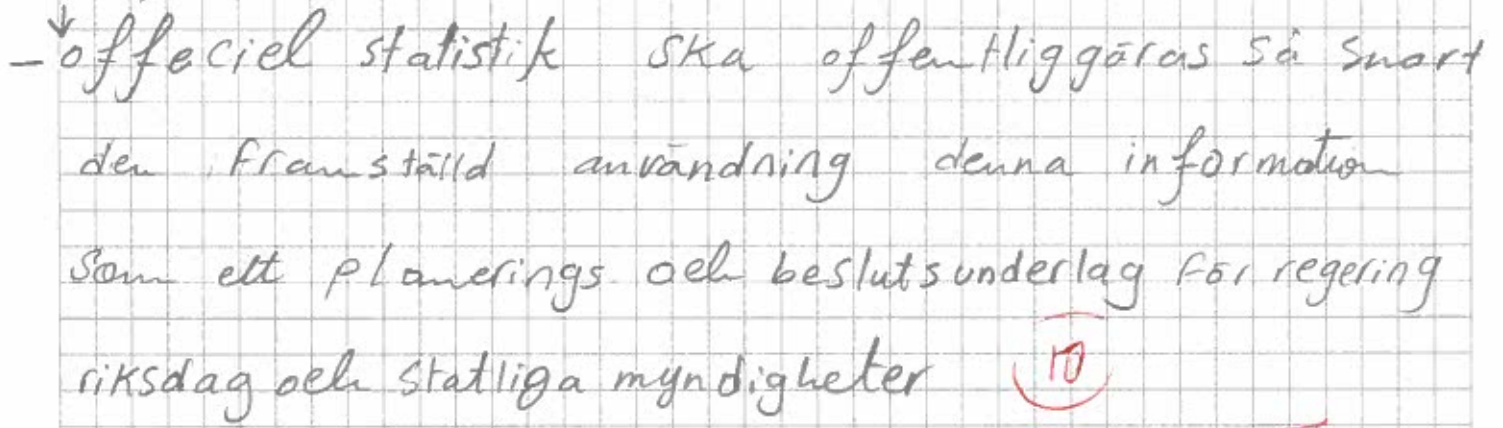 - offeciel statistik ska offentliggöras så snart
den framställd användning denna information
som ett planerings och beslutsunderlag för regering
riksdag och statliga myndigheter 10